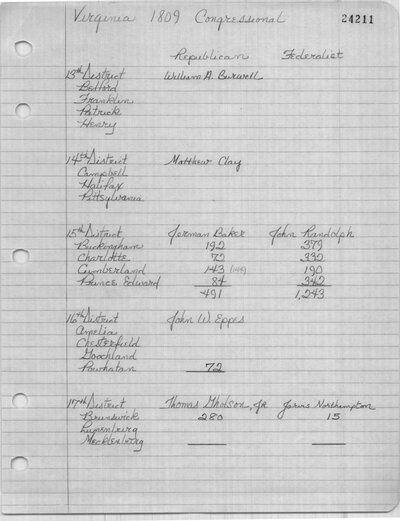 Virginia 1809 Congressional 24211
Republican Federalist
13th District William A. Burwell
Bedford
Franklin
Patrick
Henry
14th District Matthew Clay
Campbell
Halifax
Pittsylvania
15th District Jerman Baker John Randolph
Buckingham 192 379
Charlotte 72 332
Cumberland 143 (148) 190
Prince Edward 84 342
491 1,243
16th District John W. Eppes
Amelia
Chesterfield
Goochland
Powhatan 72
17th District Thomas Gholson, Jr Jarvis Northampton
Brunswick 280 15
Lunenburg
Mecklenburg